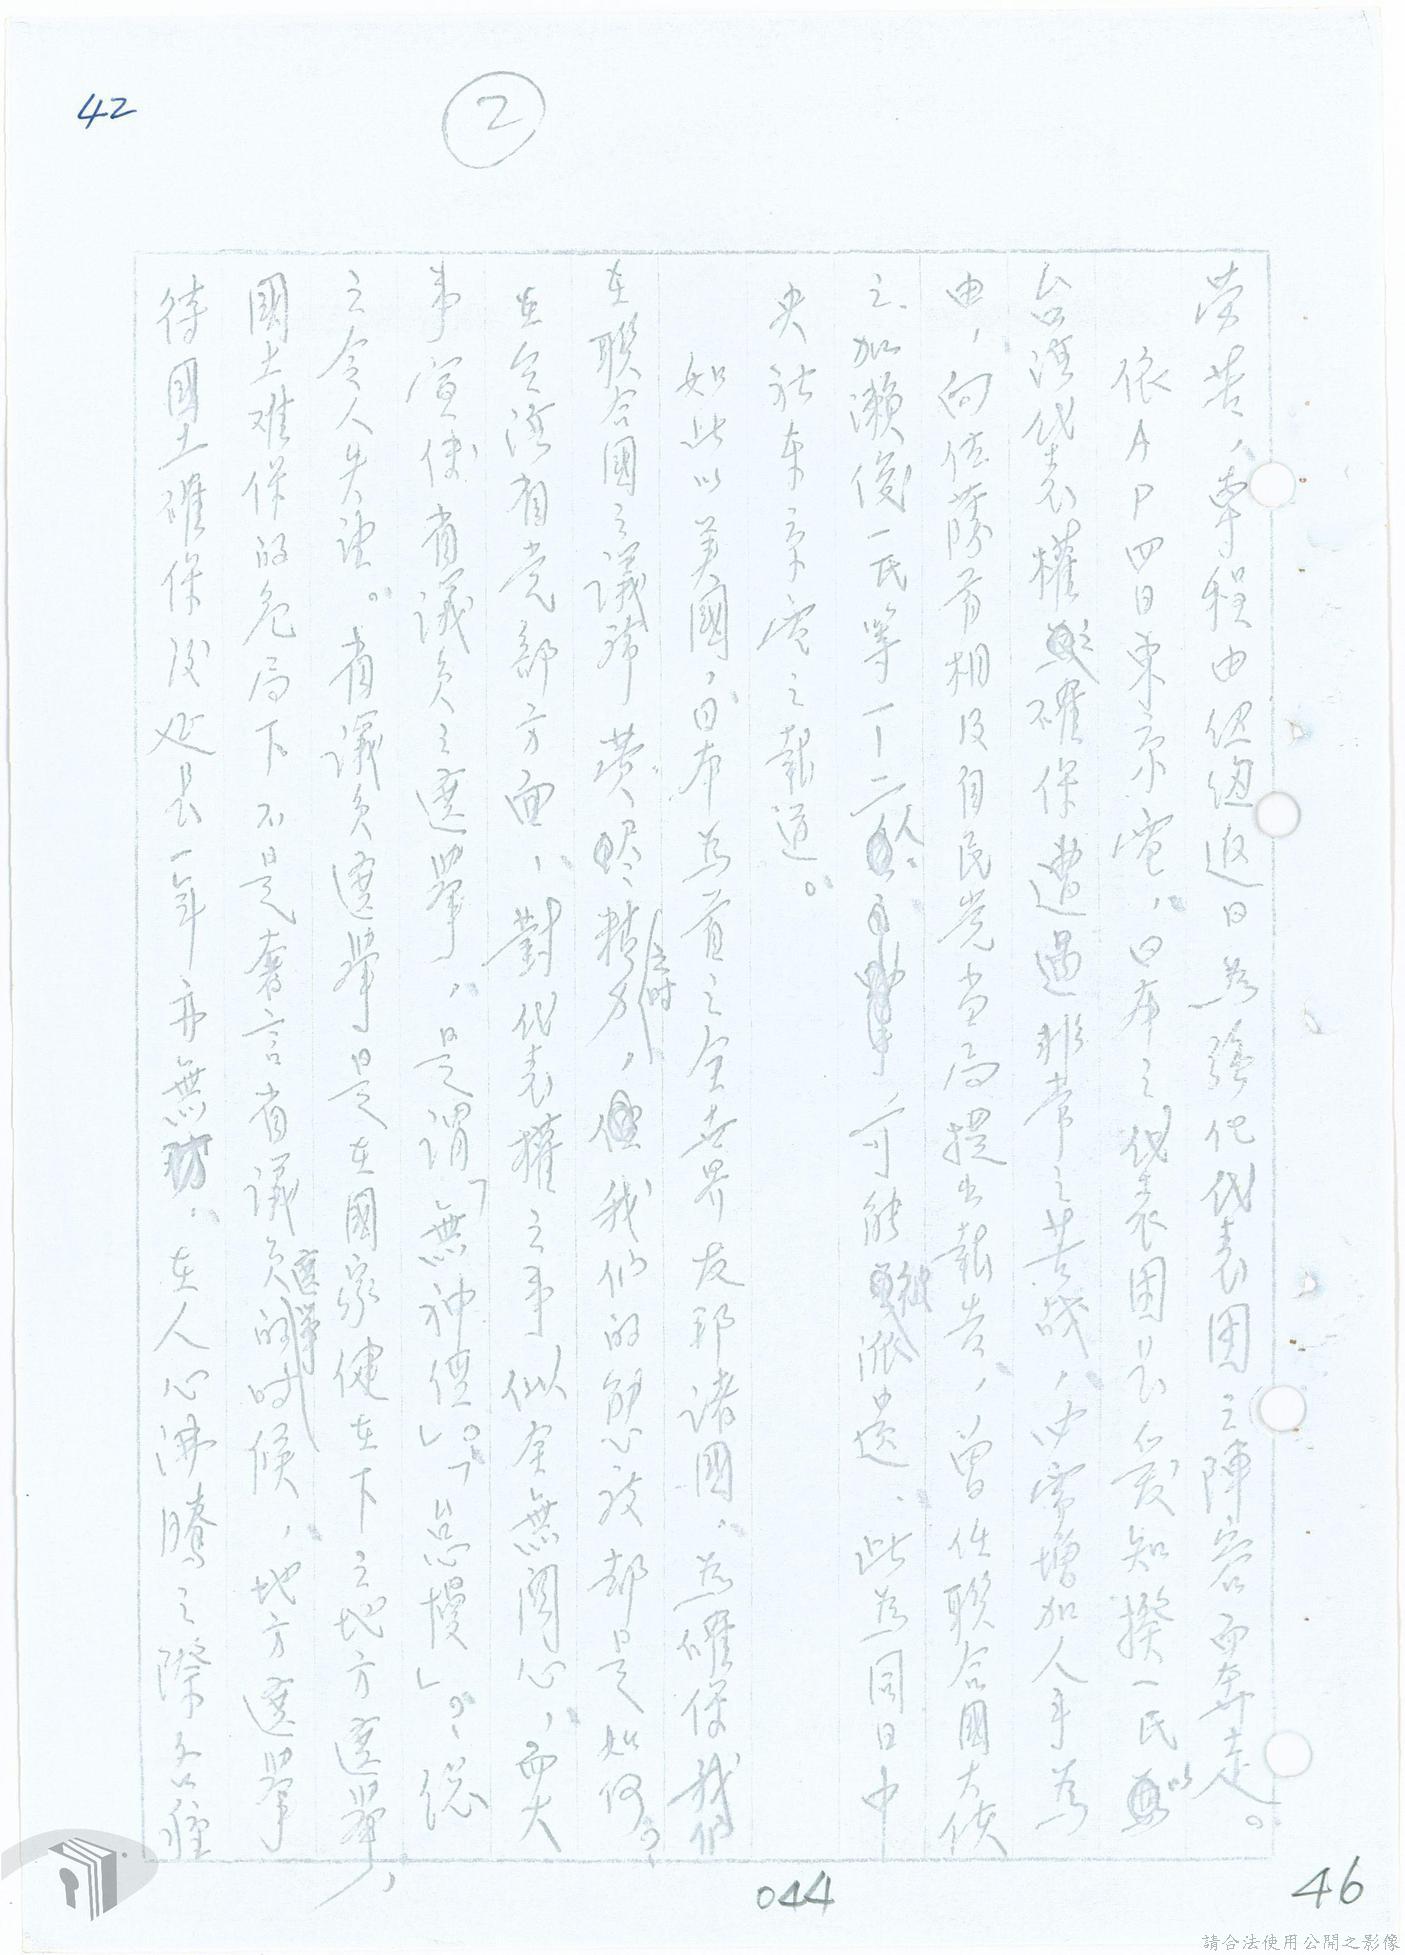 42
2
苦,專程由紐約返日為強化代表團之陣容而奔走。
依AP四日東京電,日本之代表團長愛知揆一氏以
台灣代表權確保遭遇非常之苦战,由需增加人手為
由,向佐藤首相及自民党当局提出報告,曾任联合國大使
之加瀨俊一氏等一丁二人可能被派遣.此為同日中
央社东京電之報道。
如此以美國,日本為首之全世界友邦諸國.為確保我們
在联合國之議席費尽精力之时,但我們的態度都是如何。
在台湾省党部方面、對代表權之事似全無関心,而大
事宣传省議員之選舉,是謂「無神經」。「怠慢」。、
之令人失望。省議員選舉是在國家健在下之地方選舉,
國土难保的危局下不是奢言省議員選舉的时候,地方選舉
待國土確保後延長一年亦無妨.在人心沸騰之際各種
044
46
請合法使用公開之影像